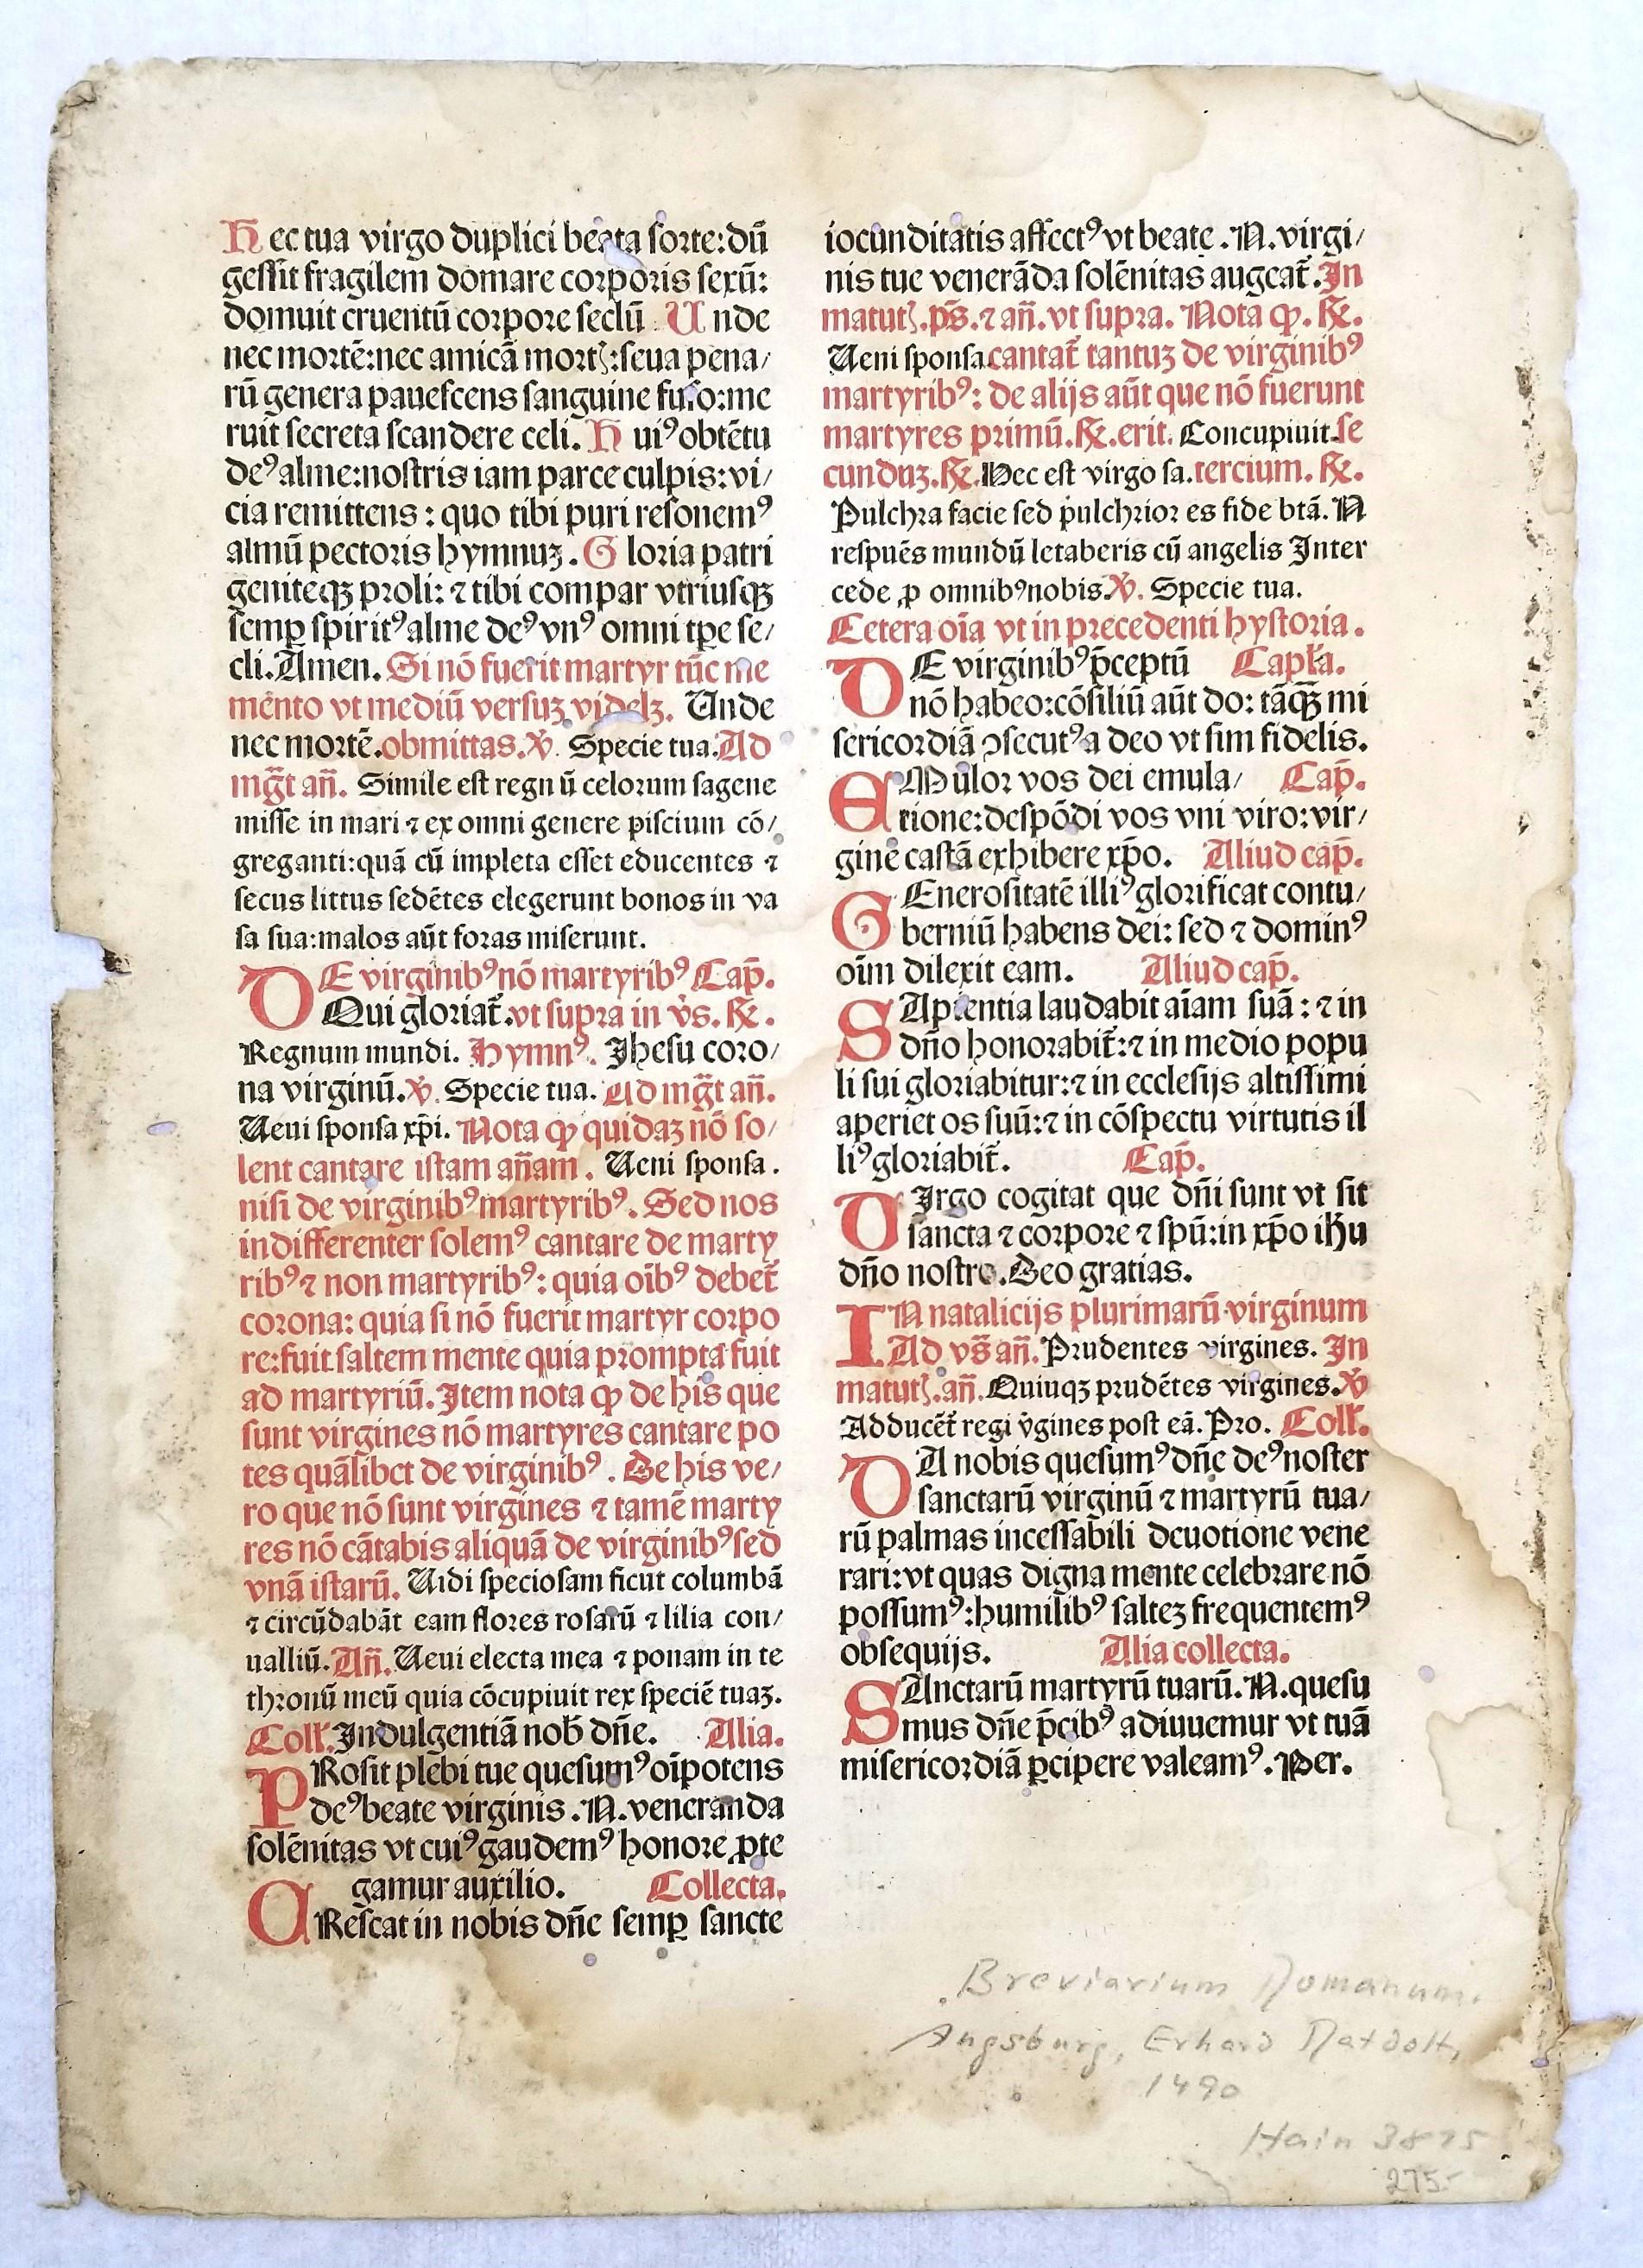 Hec tua virgo duplici beata sorte: dũ
gessit fragilem domare corporis sexũ:
domuit cruentũ corpore seclũ Unde
nec mortē: nec amicã mortꝭ: seua pena/
rũ genera pauescens sanguine fuso: me
ruit secreta scandere celi. Huiꝰ obtētu
deꝰ alme: nostris iam parce culpis: vi/
cia remittens: quo tibi puri resonemꝰ
almũ pectoris hymnuꝫ. Gloria patri
geniteqꝫ proli: ⁊ tibi compar vtriusqꝫ
semꝑ spiritꝰ alme deꝰ vnꝰ omni tꝑe se/
cli. Amen. Si nõ fuerit martyr tũc me
mento vt mediũ versuꝫ videlꝫ. Unde
nec mortē. obmittas. ℣. Specie tua. Ad
mg̃t añ. Simile est regnũ celorum sagene
misse in mari ⁊ ex omni genere piscium cõ/
greganti: quã cũ impleta esset educentes ⁊
secus littus sedētes elegerunt bonos in va
sa sua: malos aũt foras miserunt.
DE virginibꝰ nõ martyribꝰ Cap̃.
Qui gloriat̃. vt supra in v̾s. ℞.
Regnum mundi. Hymnꝰ. Jhesu coro/
na virginũ. ℣. Specie tua. Ad mg̃t añ.
Ueni sponsa xp̃i. Nota ꝙ quidaꝫ nõ so/
lent cantare istam añam. Ueni sponsa.
nisi de virginibꝰ martyribꝰ. Sed nos
indifferenter solemꝰ cantare de marty
ribꝰ ⁊ non martyribꝰ: quia oĩbꝰ debet̃
corona: quia si nõ fuerit martyr corpo
re: fuit saltem mente quia prompta fuit
ad martyriũ. Item nota ꝙ de his que
sunt virgines nõ martyres cantare po
tes quãlibet de virginibꝰ. De his ve/
ro que nõ sunt virgines ⁊ tamē marty
res nõ cãtabis aliquã de virginibꝰ sed
vnã istarũ. Uidi speciosam sicut columbã
⁊ circũdabãt eam flores rosarũ ⁊ lilia con/
ualliũ. Añ. Ueni electa mea ⁊ ponam in te
thronũ meũ quia cõcupiuit rex speciē tuaꝫ.
Coll̃. Indulgentiã nob̃ dñe. Alia.
PRosit plebi tue quesumꝰ oĩpotens
deꝰ beate virginis. N. veneranda
solēnitas vt cuiꝰ gaudemꝰ honore ꝓte
gamur auxilio. Collecta.
CRescat in nobis dñe semꝑ sancte
iocunditatis affectꝰ vt beate. N. virgi/
nis tue venerãda solēnitas augeat̃. In
matutꝭ. p̃s. ⁊ añ. vt supra. Nota ꝙ. ℞.
Ueni sponsa cantat̃ tantuꝫ de virginibꝰ
martyribꝰ: de alijs aũt que nõ fuerunt
martyres primũ. ℞. erit. Concupiuit. se
cunduꝫ. ℞. Hec est virgo sa. tercium. ℞.
Pulchra facie sed pulchrior es fide btã. N
respuēs mundũ letaberis cũ angelis Inter
cede ꝓ omnibꝰ nobis. ℣. Specie tua.
Cetera oĩa vt in precedenti hystoria.
DE virginibꝰ p̃ceptũ Capl̃a.
nõ habeo: cõsiliũ aũt do: tãqꝫ̃ mi
sericordiã ↄsecutꝰ a deo vt sim fidelis.
EMulor vos dei emula/ Cap̃.
tione: despõdi vos vni viro: vir/
ginē castã exhibere xp̃o. Aliud cap̃.
GEnerositatē illiꝰ glorificat contu/
berniũ habens dei: sed ⁊ dominꝰ
oĩm dilexit eam. Aliud cap̃.
SApientia laudabit aĩam suã: ⁊ in
dño honorabit̃: ⁊ in medio popu
li sui gloriabitur: ⁊ in ecclesijs altissimi
aperiet os suũ: ⁊ in cõspectu virtutis il
liꝰ gloriabit̃. Cap̃.
UIrgo cogitat que dñi sunt vt sit
sancta ⁊ corpore ⁊ spũ: in xp̃o ihũ
dño nostro. Deo gratias.
IN natalicijs plurimarũ virginum
Ad vs̃ añ. Prudentes virgines. In
matutꝭ. añ. Quinqꝫ prudētes virgines. ℣
Adducēt̃ regi v̾gines post eã. Pro. Coll̃.
DA nobis quesumꝰ dñe deꝰ noster
sanctarũ virginũ ⁊ martyrũ tua/
rũ palmas incessabili deuotione vene
rari: vt quas digna mente celebrare nõ
possumꝰ: humilibꝰ salteꝫ frequentemꝰ
obsequijs. Alia collecta.
SAnctarũ martyrũ tuarũ. N. quesu
mus dñe p̃cibꝰ adiuuemur vt tuã
misericordiã ꝑcipere valeamꝰ. Per.
Breviarium Romanum.
Augsburg, Erhard Ratdolt,
1490
Hain 3875
275-